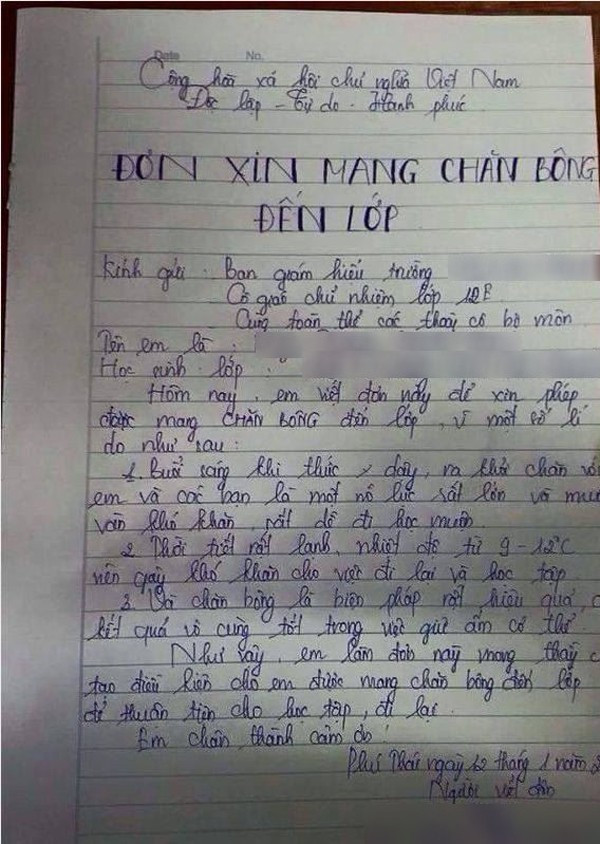 Date No.
Cộng hoà xã hội chủ nghĩa Việt Nam
Độc lập - Tự do - Hạnh phúc
ĐƠN XIN MANG CHĂN BÔNG
ĐẾN LỚP
Kính gửi : Ban giám hiệu trường
Cô giáo chủ nhiệm lớp 12E
Cùng toàn thể các thầy cô bộ môn
Tên em là :
Học sinh lớp :
Hôm nay, em viết đơn này để xin phép
được mang CHĂN BÔNG đến lớp, vì một số lí
do như sau :
1. Buổi sáng khi thức dậy, ra khỏi chăn với
em và các bạn là một nỗ lực rất lớn và muôn
vàn khó khăn, rất dễ đi học muộn.
2. Thời tiết rất lạnh, nhiệt độ từ 9 - 12°C
nên gây khó khăn cho việc đi lại và học tập
3. Và chăn bông là biện pháp rất hiệu quả,
kết quả vô cùng tốt trong việc giữ ấm cơ thể
Như vậy, em làm đơn này mong thầy c
tạo điều kiện cho em được mang chăn bông đến lớp
để thuận tiện cho học tập, đi lại.
Em chân thành cảm ơn!
Phú Thái ngày 12 tháng 1 năm 2
Người viết đơn